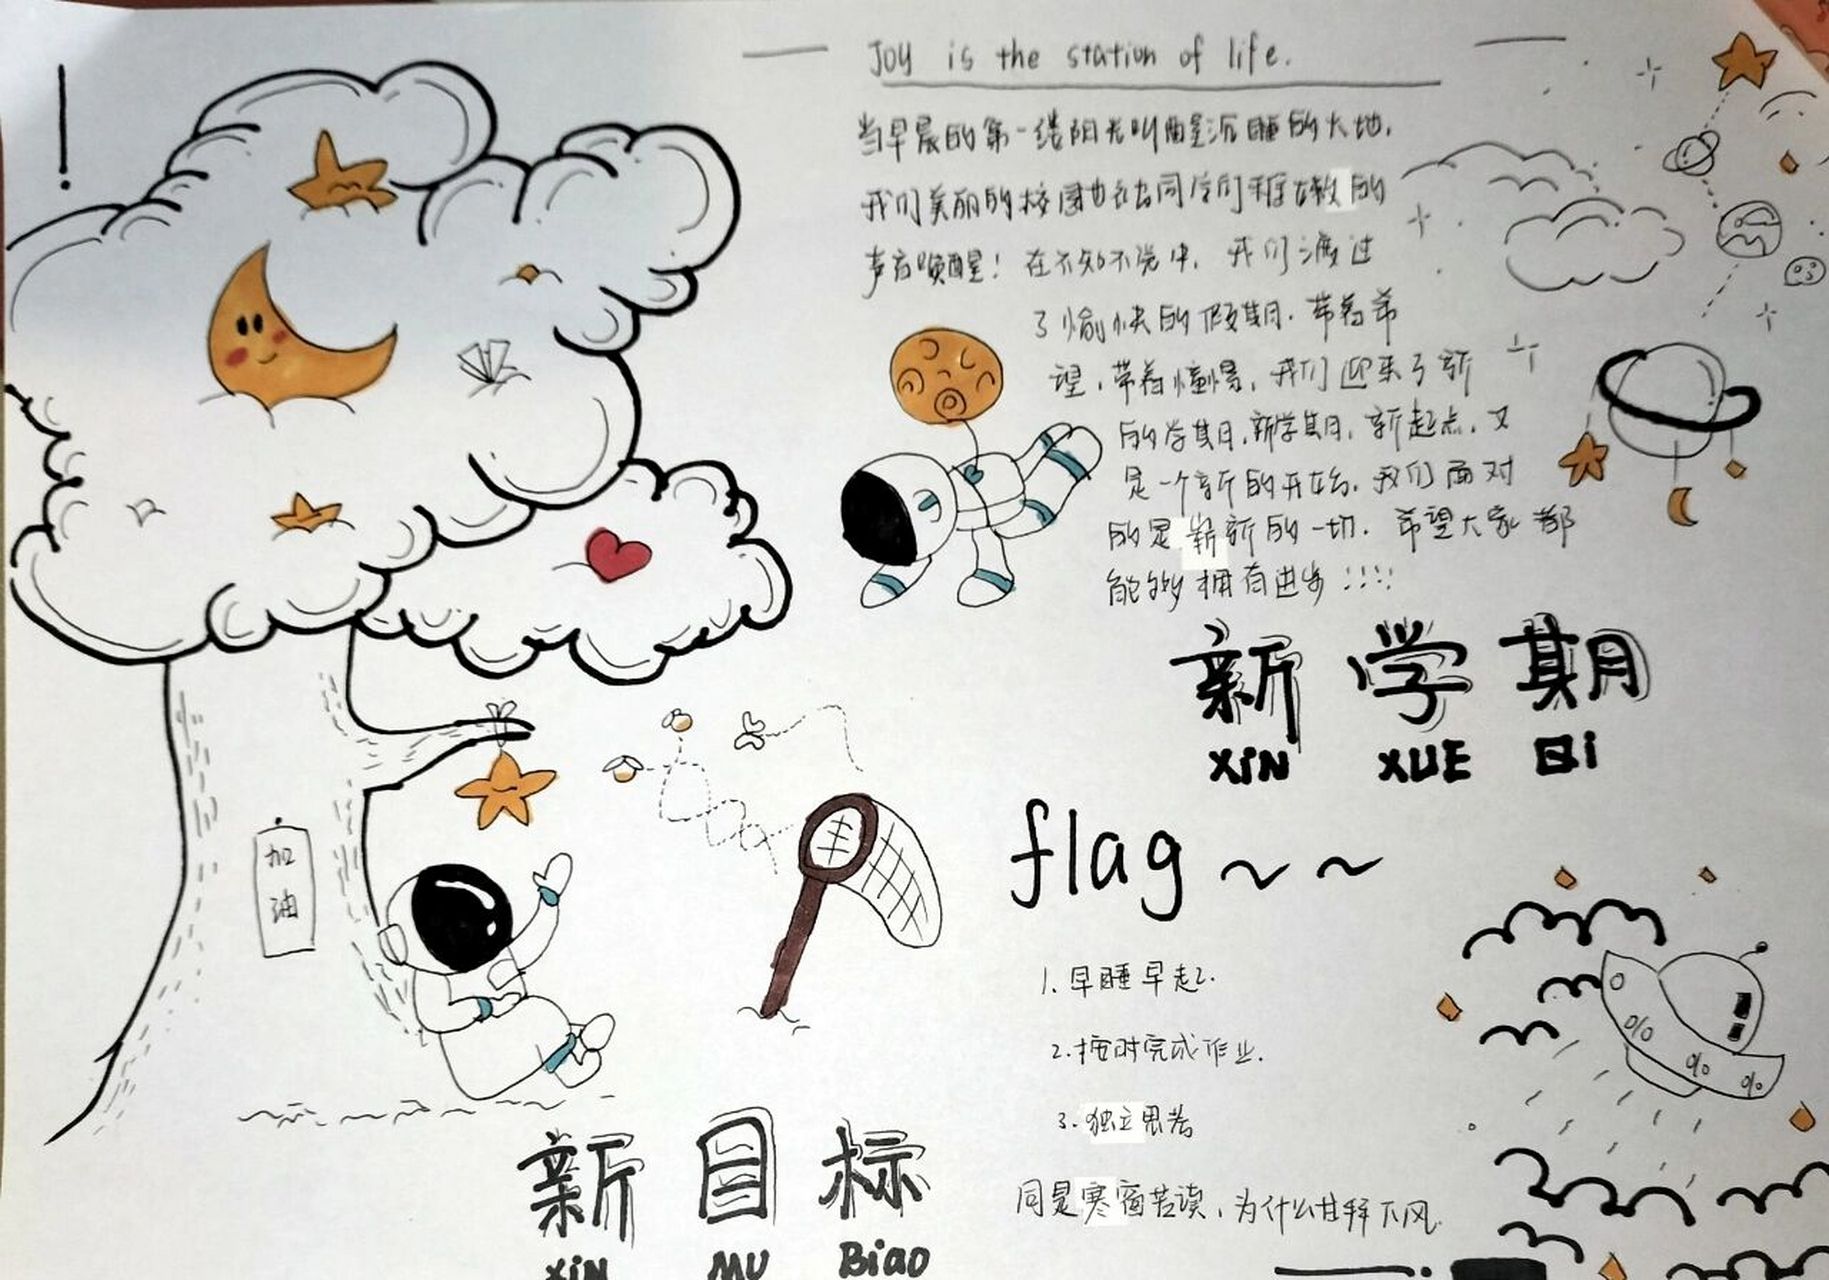 Joy is the station of life.
当早晨的第一缕阳光叫醒沉睡的大地,
我们美丽的校园也在同学们的
声音唤醒！在不知不觉中，我们渡过
了愉快的假期.带着希
望,带着憧憬,我们迎来了新
的学期,新学期,新起点,又
是一个新的开始.我们面对
的是崭新的一切.希望大家都
能够拥有进步!!!!
新学期
XiN XUE Qi
flag~~
加油
1.早睡早起.
2.按时完成作业.
3.独立思考
同是寒窗苦读,为什么甘拜下风.
新目标
XiN MU Biao